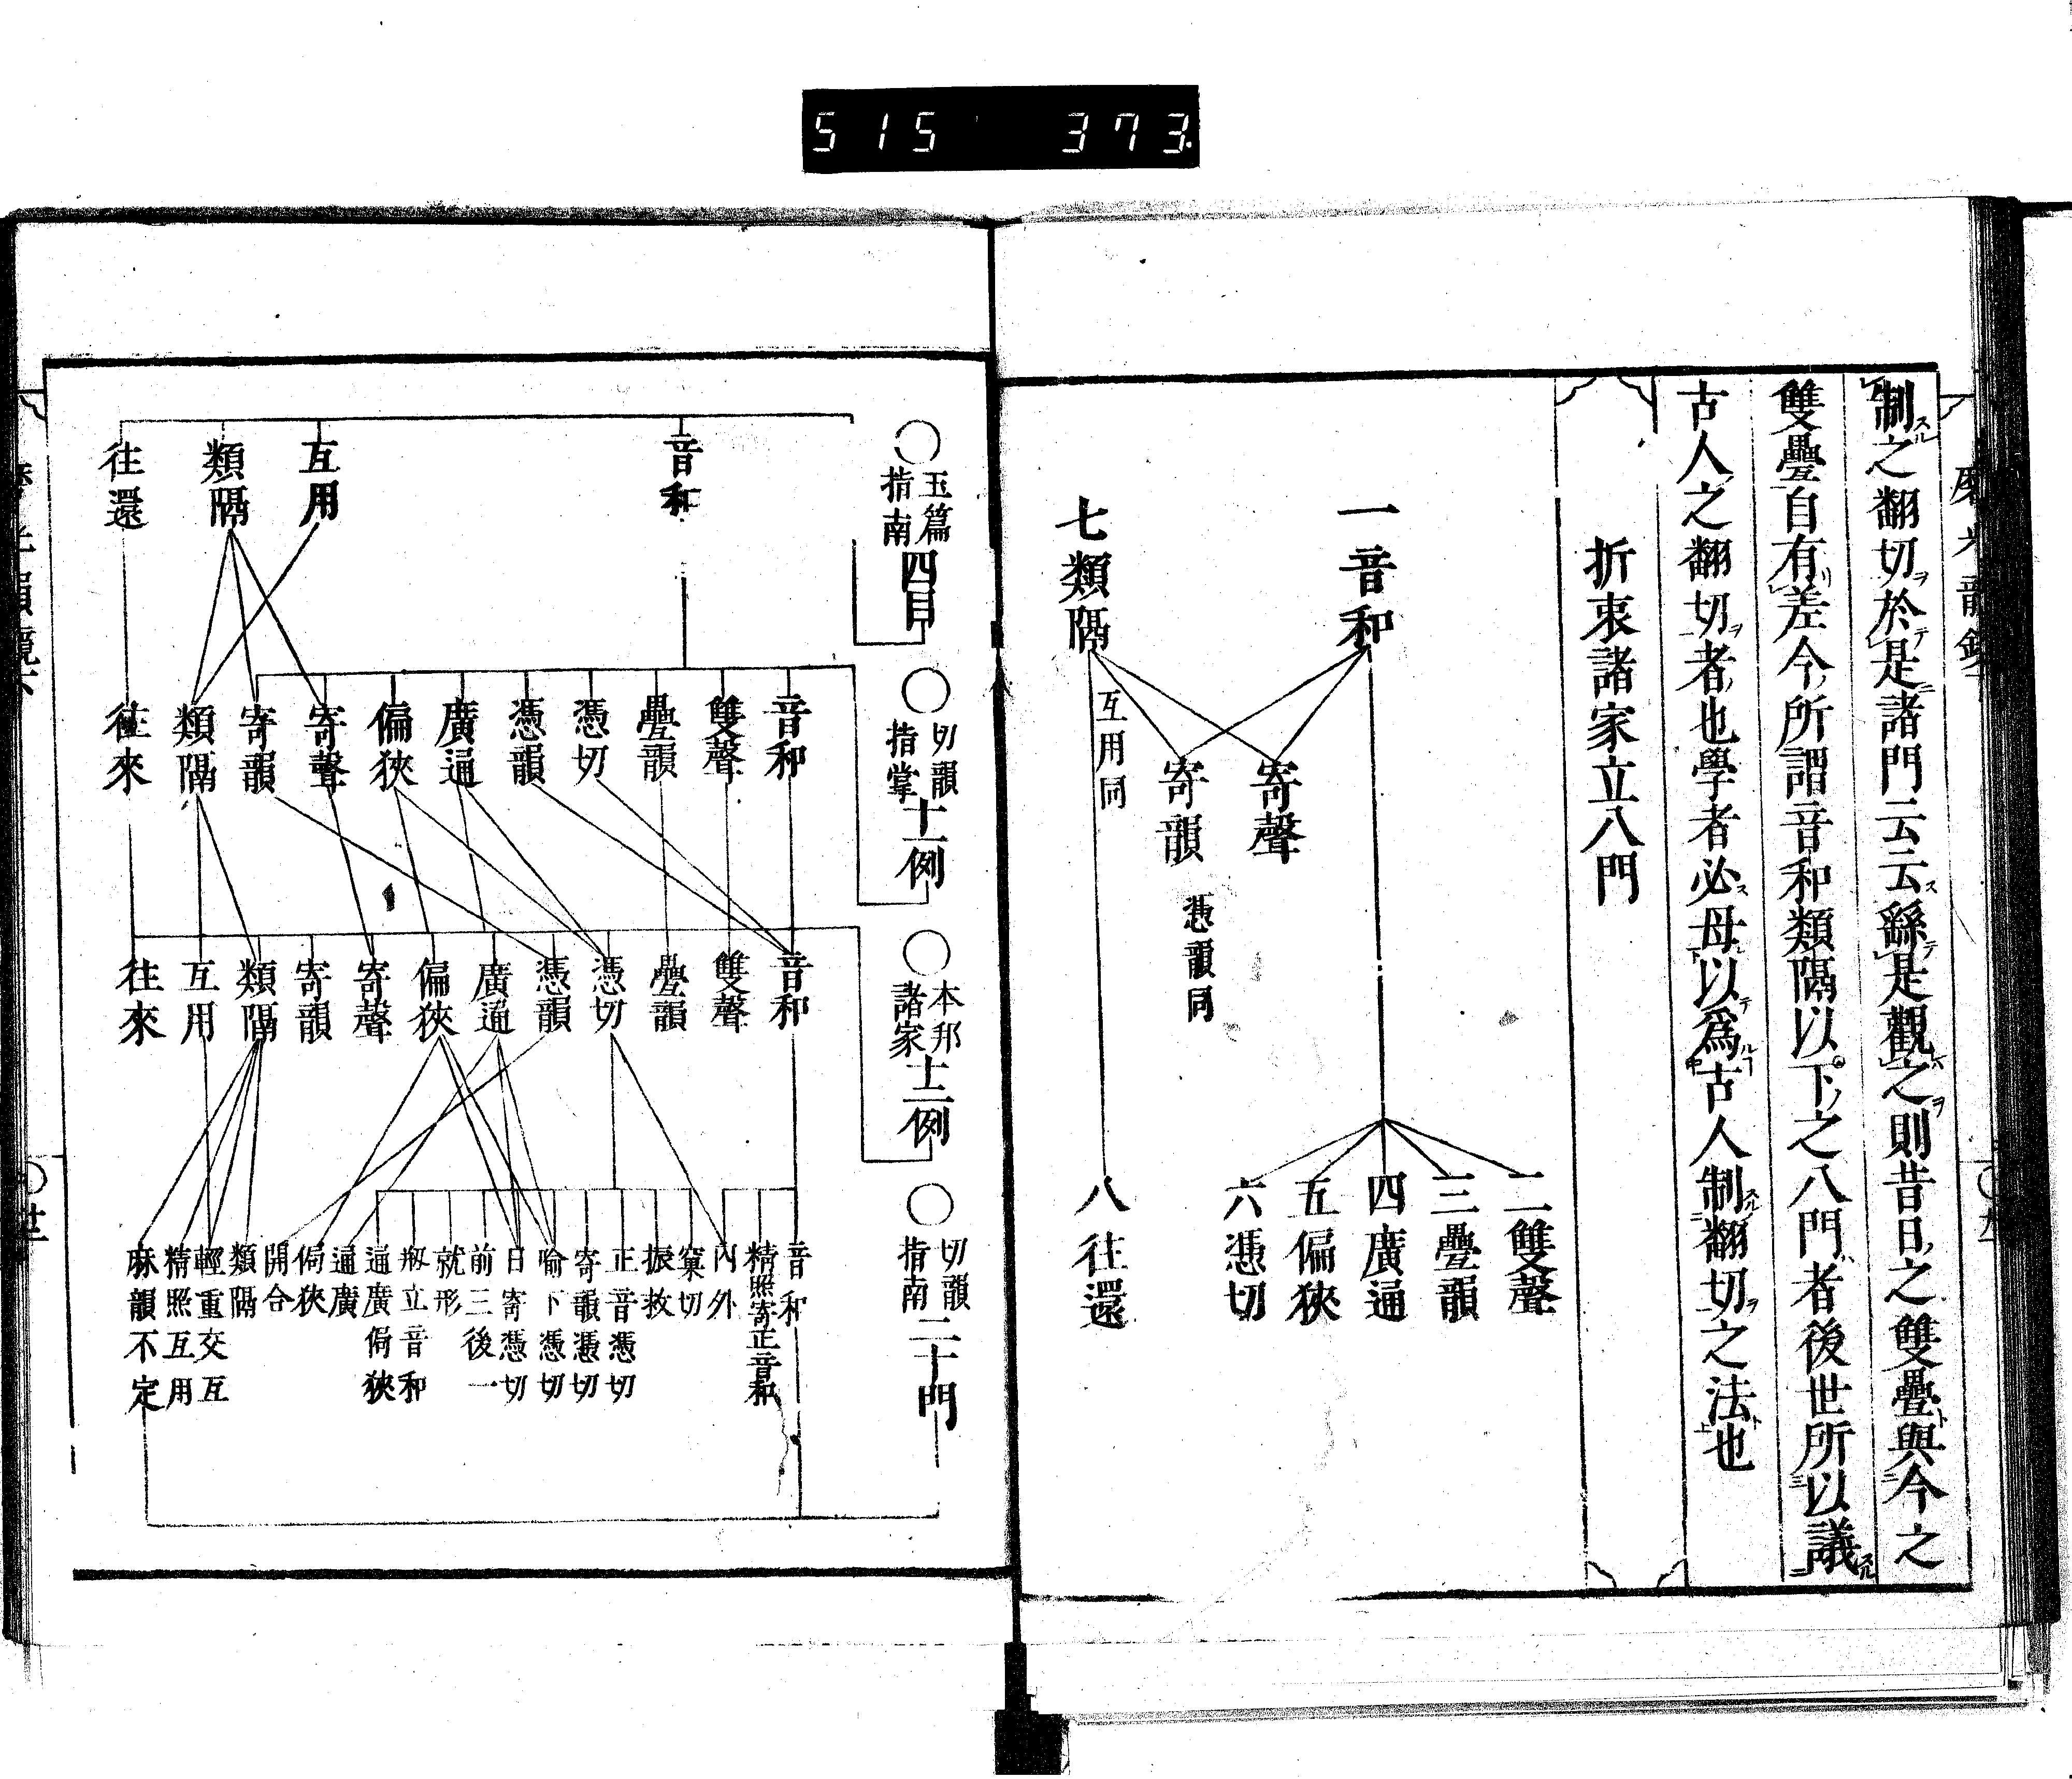 515 373
制スル之翻切ヲ於テ是ニ諸門云云ス繇テ是觀レハ之ヲ則昔日ノ之雙疊ト與今之
雙疊自有リ差今ノ所謂音和類隔以下ノ之八門ハ者後世所以議スル
古人之翻切ヲ者ノ也學者必ス母以テ爲ルコ古人制スル翻切ヲ之法ト也
折衷諸家立八門
一音和
二雙聲
三疊韻
四廣通
五偏狹
六憑切
寄聲
寄韻
憑韻同
七類隔
互用同
八往還
○玉篇指南四目
音和
互用
類隔
往還
○切韻指掌十一例
音和
雙聲
疊韻
憑切
憑韻
廣通
偏狹
寄聲
寄韻
類隔
往來
○本邦諸家十二例
音和
雙聲
疊韻
憑切
憑韻
廣通
偏狹
寄聲
寄韻
類隔
互用
往來
○切韻指南二十門
音和
精照寄正音和
內外
窠切
振救
正音憑切
寄韻憑切
喻下憑切
日寄憑切
前三後一
就形
剏立音和
通廣侷狹
通廣
侷狹
開合
類隔
輕重交互
精照互用
麻韻不定